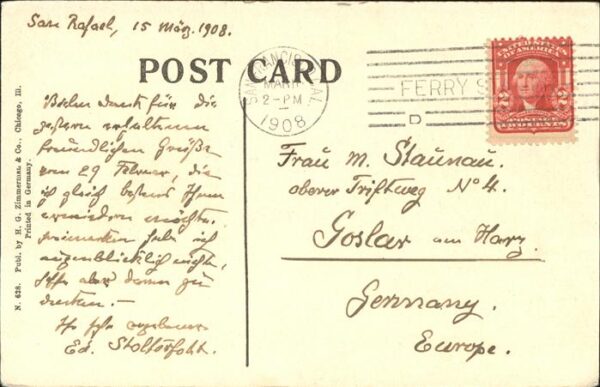 San Rafael, 15 März. 1908.
POST CARD
SAN FRANCISCO, CAL.
MAR
2-PM
1908
FERRY S
D
Vielen Dank für die
gestern erhaltenen
freundlichen Grüße
vom 29 Februar, die
ich gleich bestens Ihnen
erwiedern möchte.
habe ich
augenblicklich nicht,
hoffe aber dann zu
danken. —
Ihr sehr ergebener
Ed. Stoltorfoht.
Frau M. Staunau.
oberer Triftweg No 4.
Goslar am Harz.
Germany.
Europe.
UNITED STATES
OF AMERICA
2 2
POSTAGE
TWO CENTS
N. 628. Publ. by H. G. Zimmerman & Co., Chicago, Ill.
Printed in Germany.